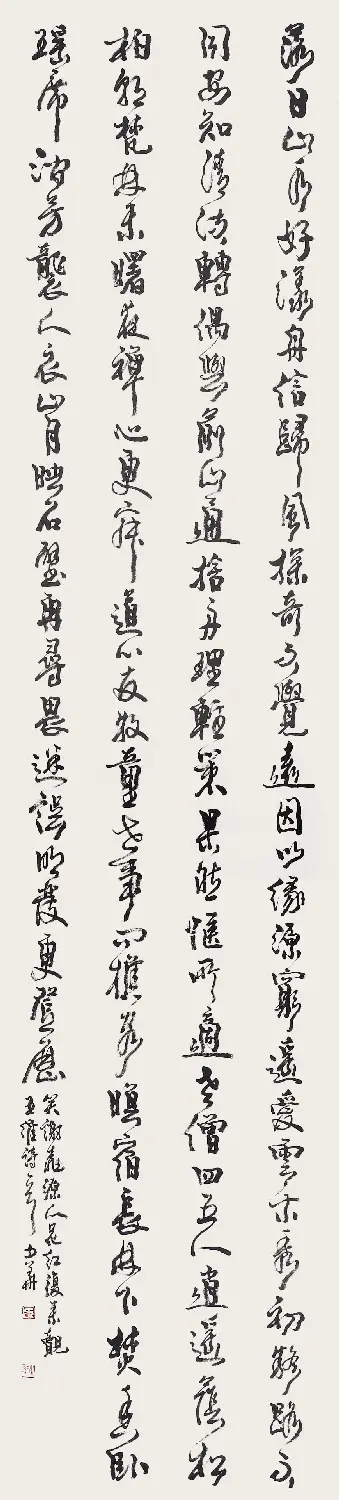 落日山水好漾舟信歸風探奇不覺遠因以緣源窮遙愛雲木秀初疑路不
同安知清流轉偶與前山通捨舟理輕策果然愜所適老僧四五人逍遙蔭松
柏朝梵林未曙夜禪山更寂道心及牧童世事問樵客暝宿長林下焚香臥
瑤席澗芳襲人衣山月映石壁再尋畏迷誤明發更登歷
笑謝桃源人花紅復來覿
王維詩